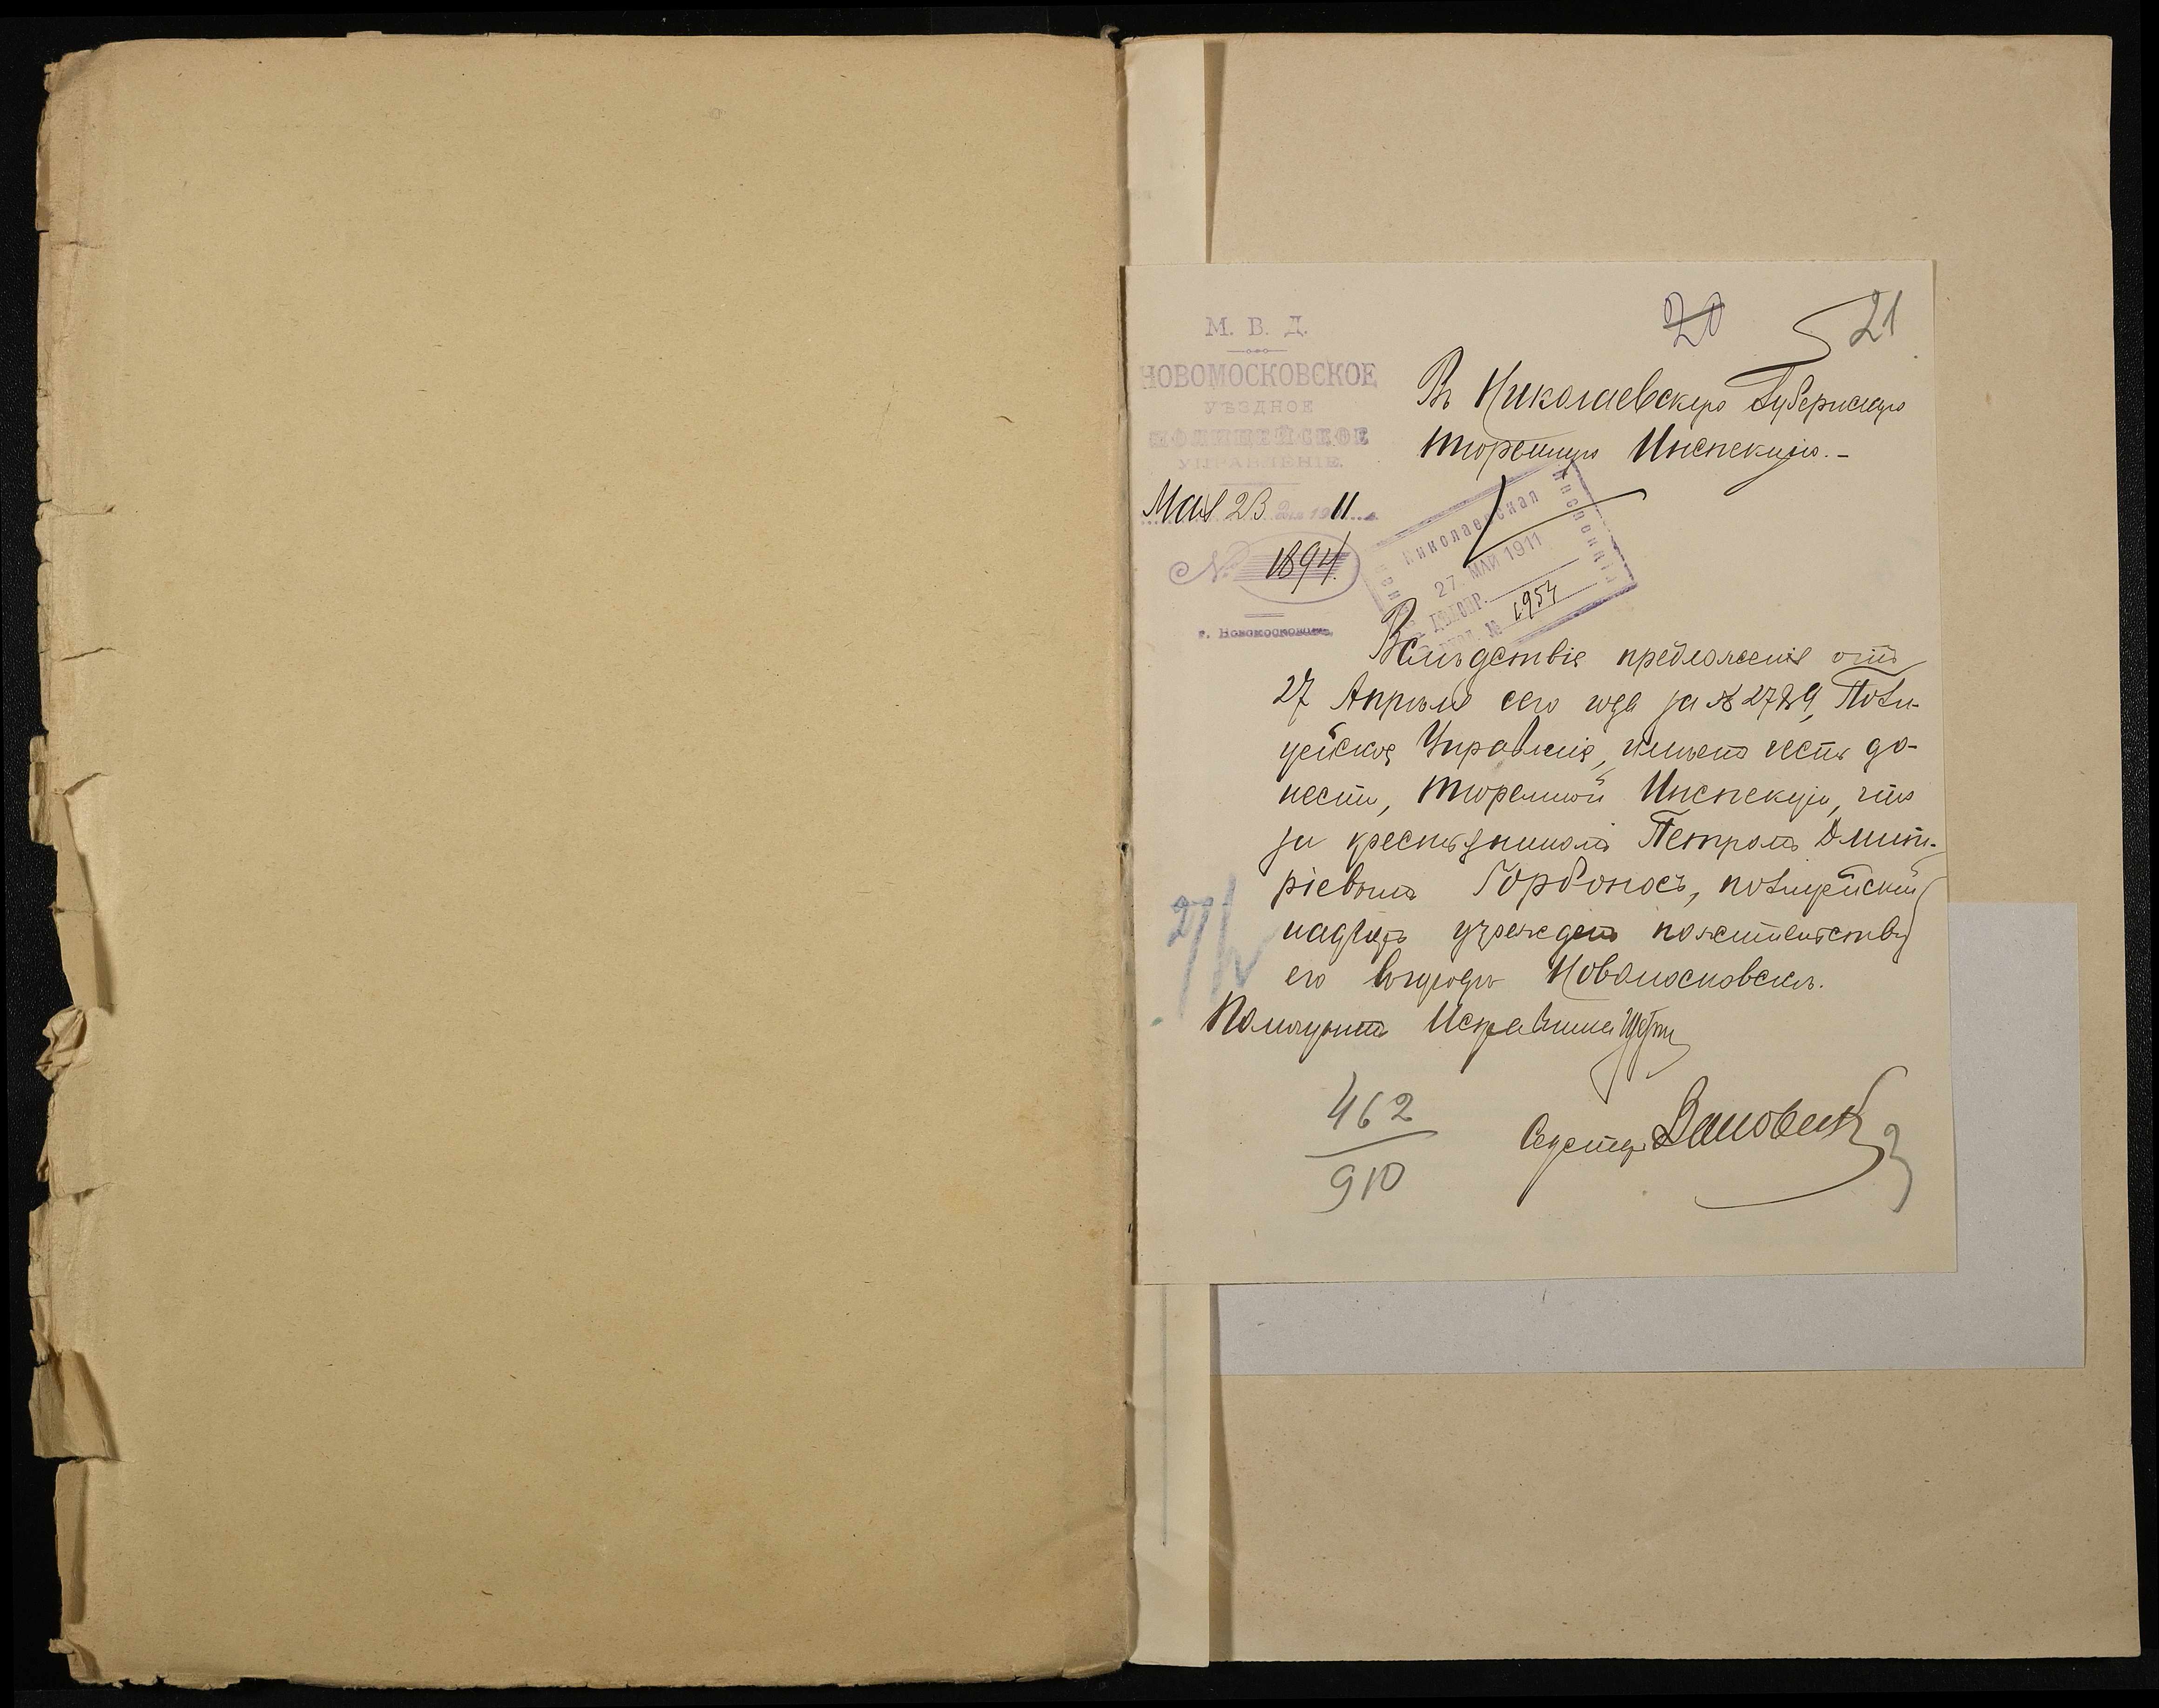 20 21
М. В. Д.
НОВОМОСКОВСКОЕ
УѢЗДНОЕ
ПОЛИЦЕЙСКОЕ
УПРАВЛЕНІЕ.
Мая 23 дня 1911 г.
№ 1894.
г. Новомосковскъ,
Въ Николаевскую Губернскую
Тюремную Инспекцію.-
Николаевская
Инспекція
27 МАЙ 1911
№ 1954
Вслѣдствіе предложенія отъ
27 Апрѣля сего года за № 2789, Поли-
цейское Управленіе, имѣетъ честь до-
нести, Тюремной Инспекціи, что
за крестьяниномъ Петромъ Дмит-
ріевымъ Горбоносъ, полицейскій
надзоръ учрежденъ по жительству
его въ городѣ Новомосковскѣ.
Помощникъ Исправника
Секретарь
27/V
462
910